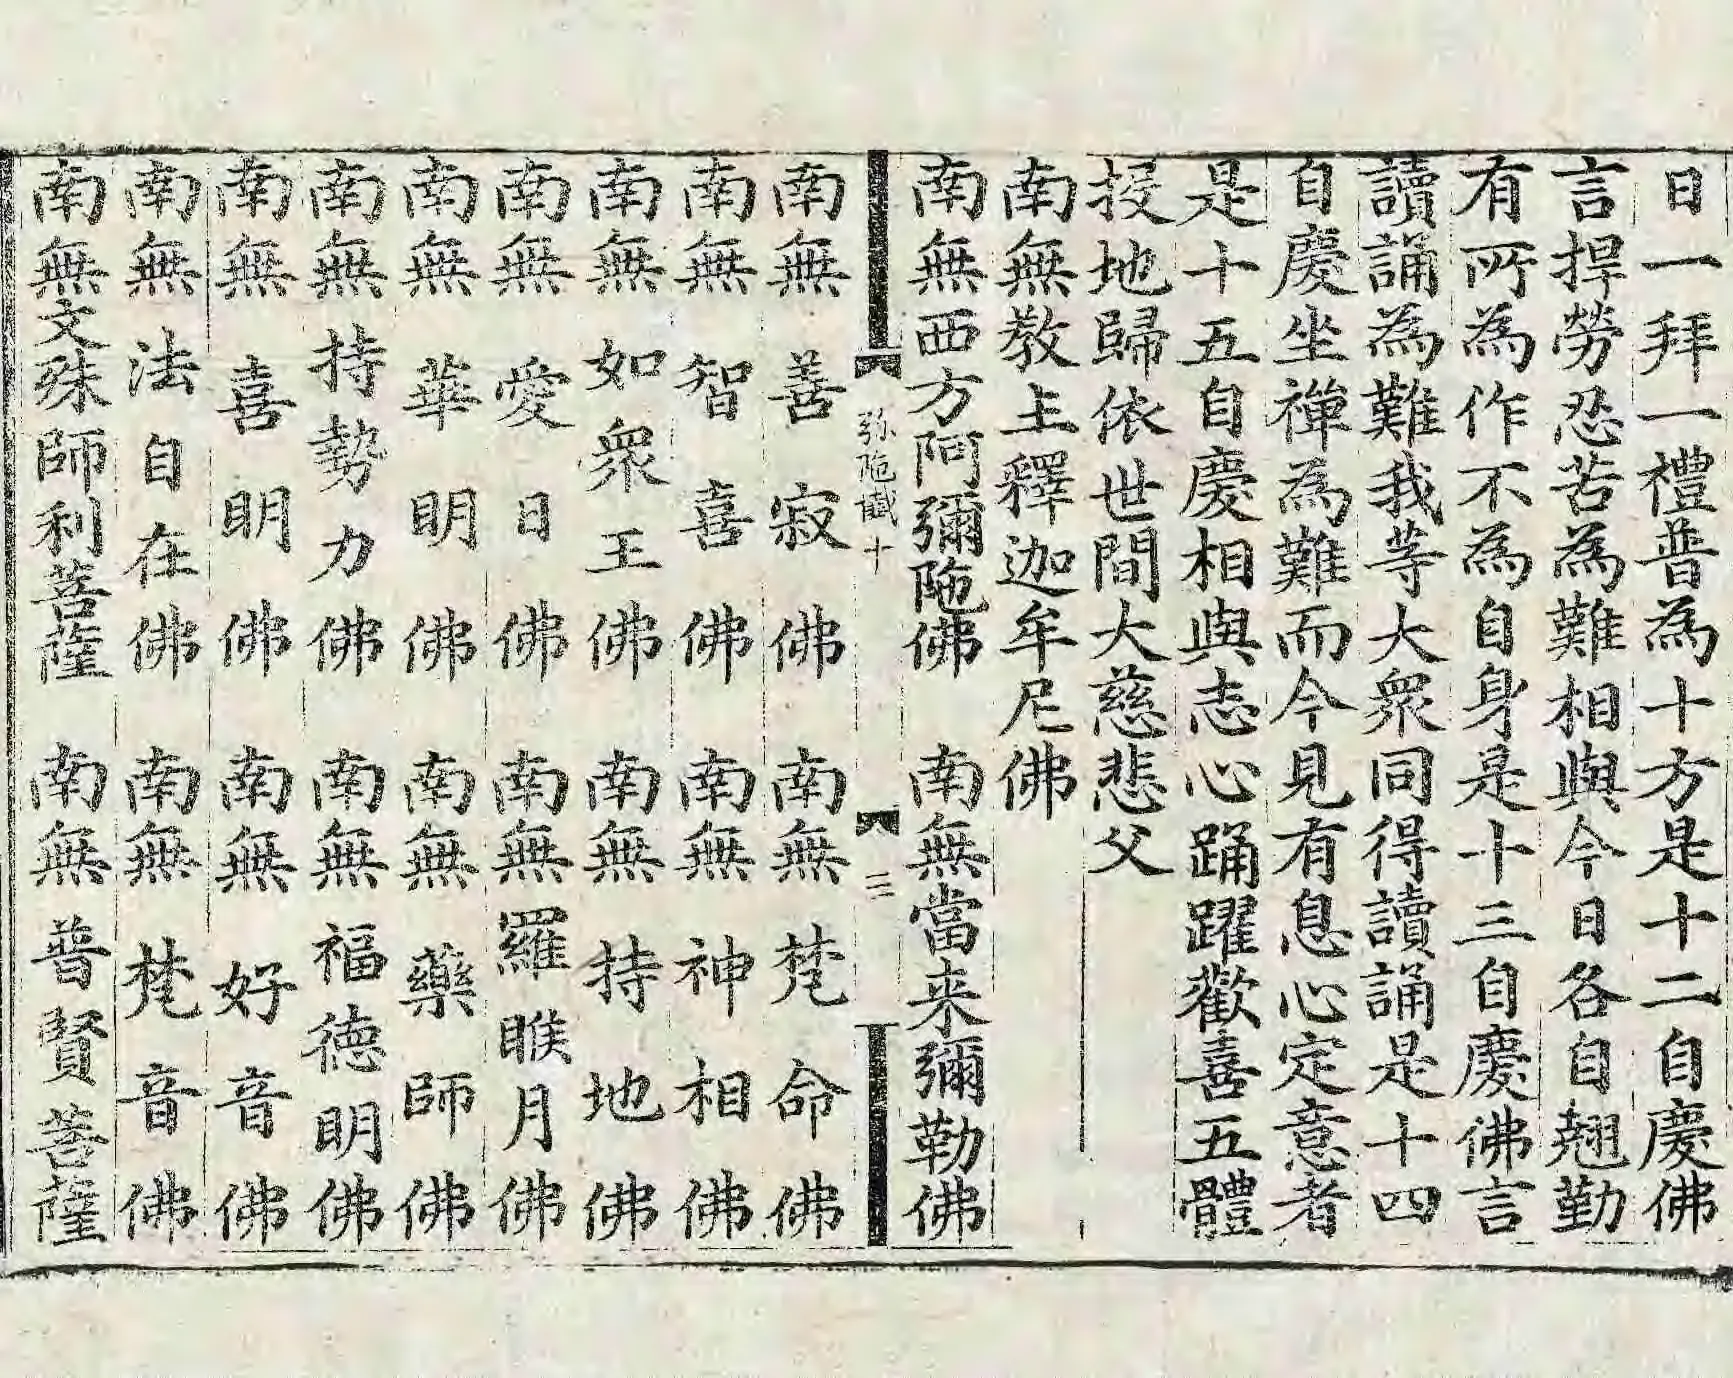 日一拜一禮普為十方是十二自慶佛
言捍勞忍苦為難相與今日各自翹勤
有所為作不為自身是十三自慶佛言
讀誦為難我等大衆同得讀誦是十四
自慶坐禪為難而今見有息心定意者
是十五自慶相與志心踊躍歡喜五體
投地歸依世間大慈悲父
南無敎主釋迦牟尼佛
南無西方阿彌陁佛　南無當来彌勒佛
弥陁懺十　三
南無善寂佛　南無梵命佛
南無智喜佛　南無神相佛
南無如衆王佛　南無持地佛
南無愛日佛　南無羅睺月佛
南無華明佛　南無藥師佛
南無持勢力佛　南無福德明佛
南無喜明佛　南無好音佛
南無法自在佛　南無梵音佛
南無文殊師利菩薩　南無普賢菩薩